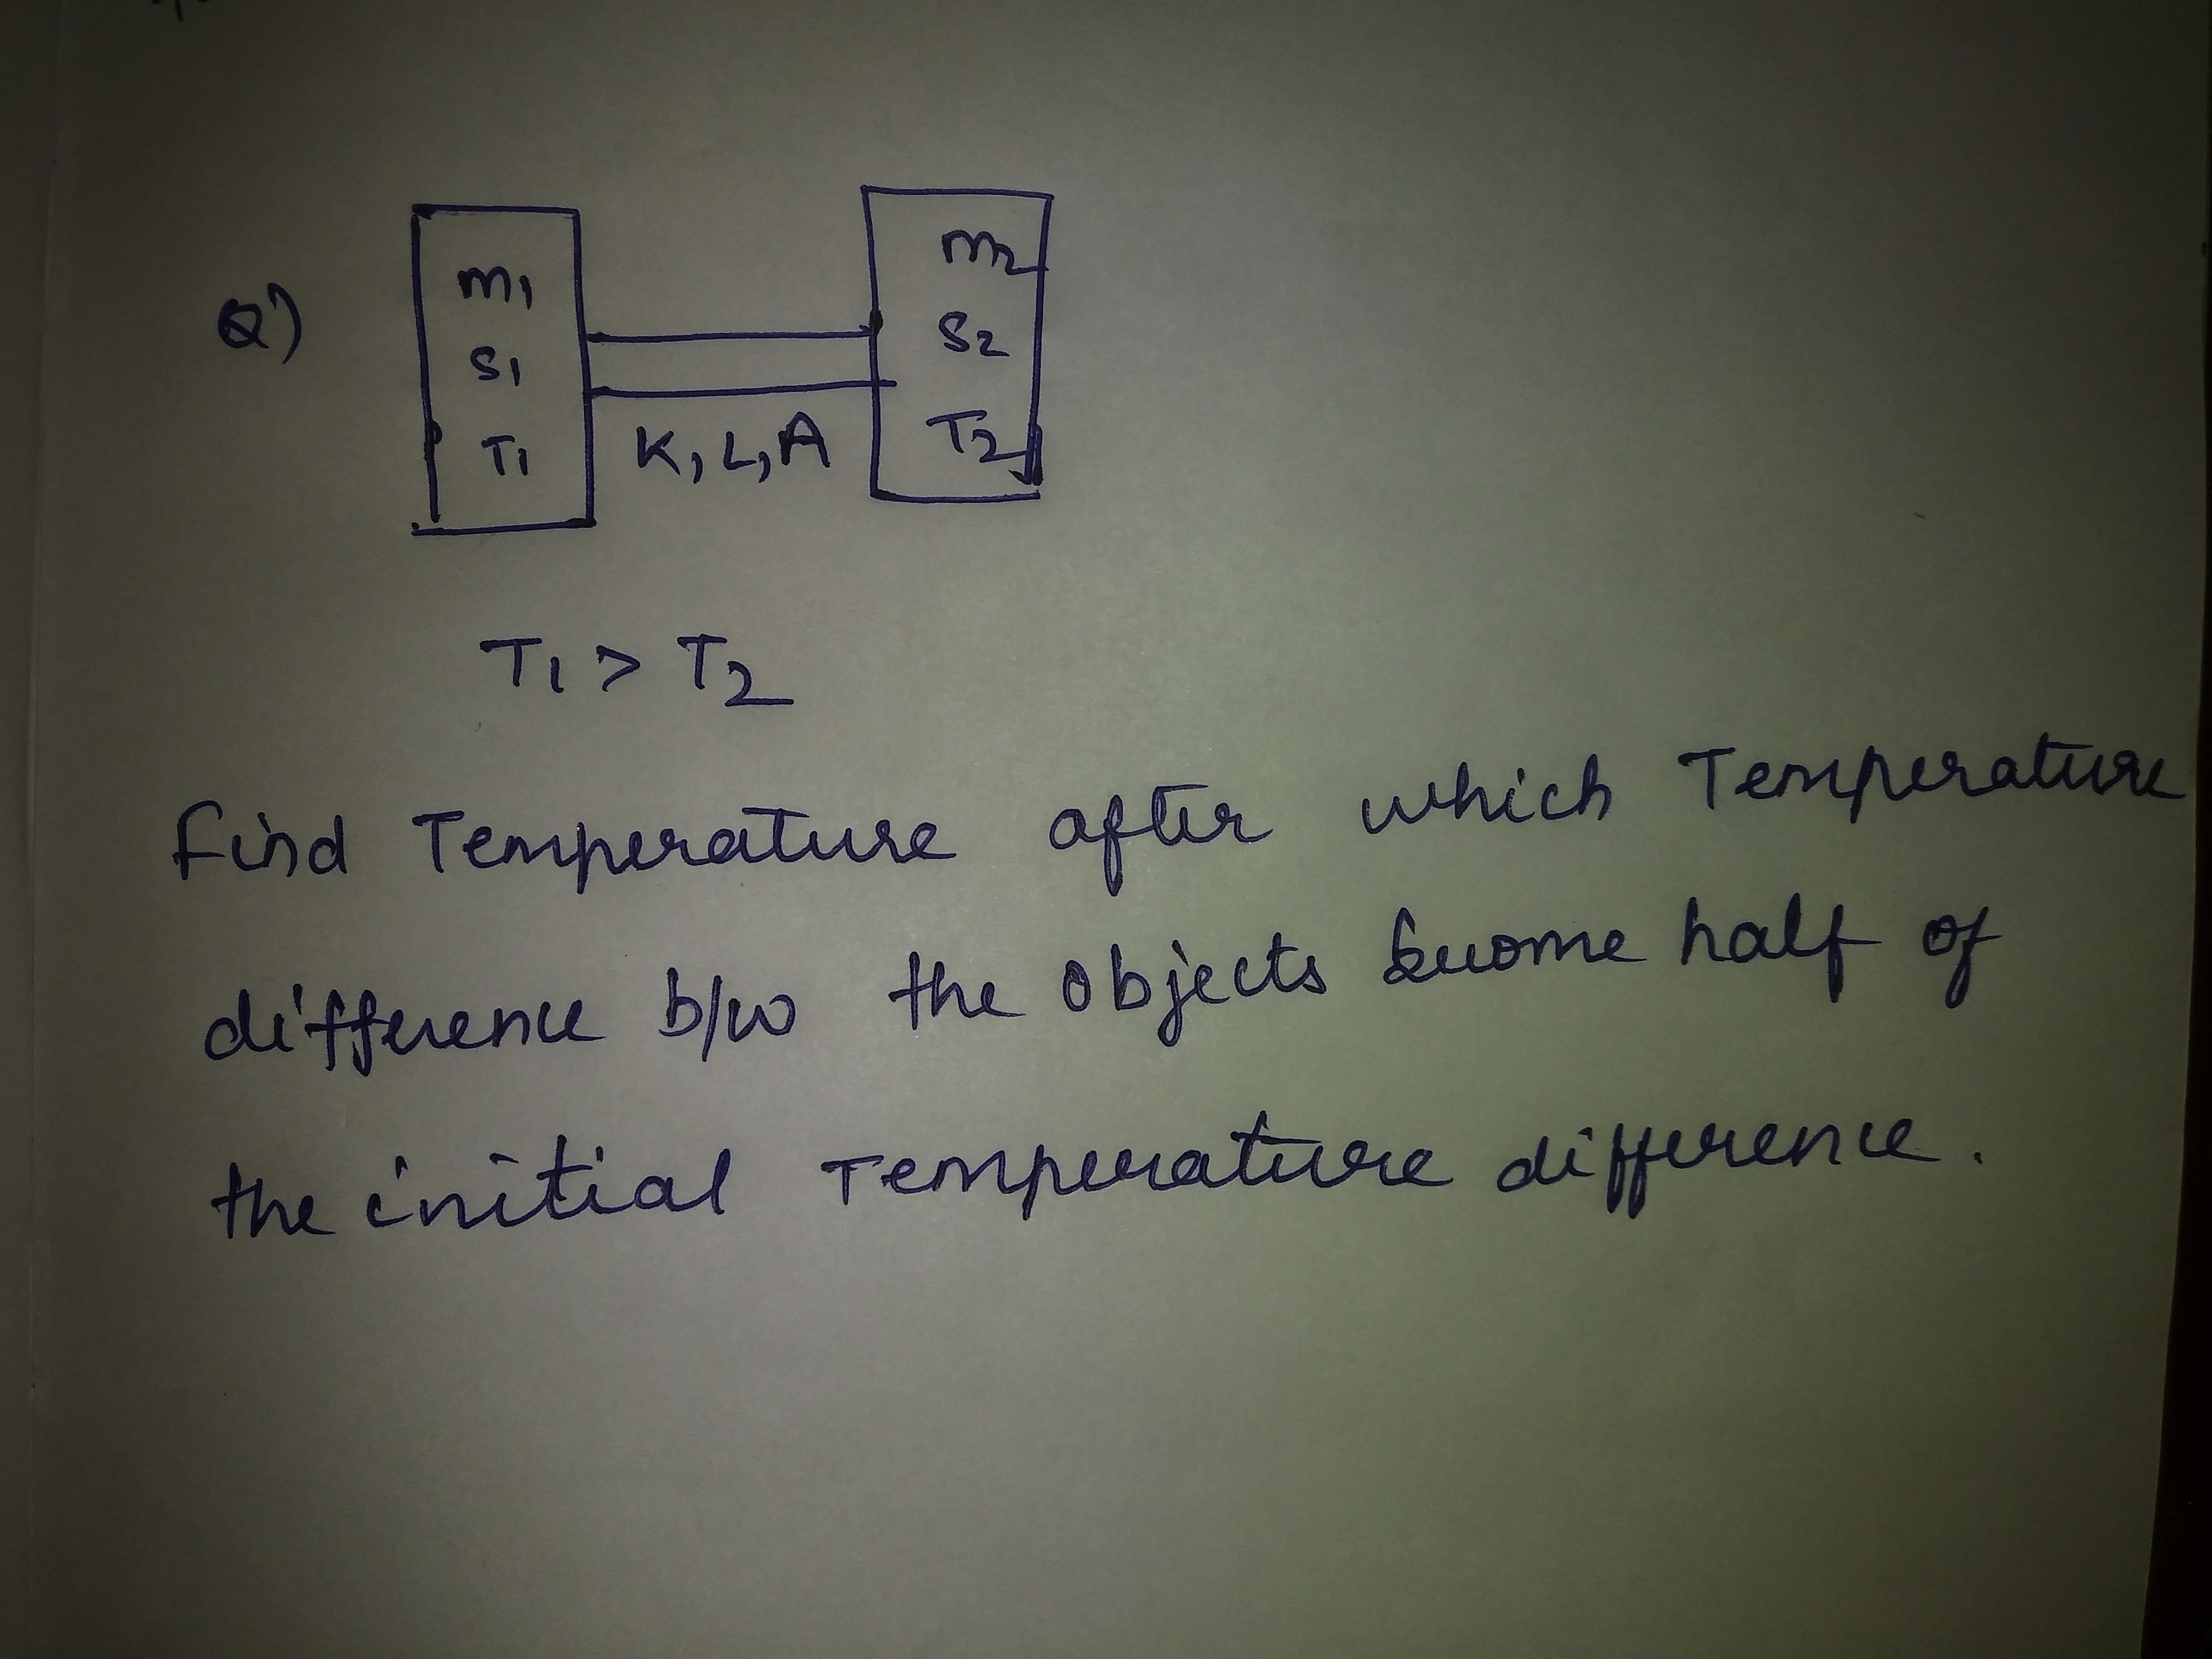 Q)
m1
S1
T1
K, L, A
m2
S2
T2
T1 > T2
Find Temperature after which Temperature
difference b/w the objects become half of
the initial Temperature difference.